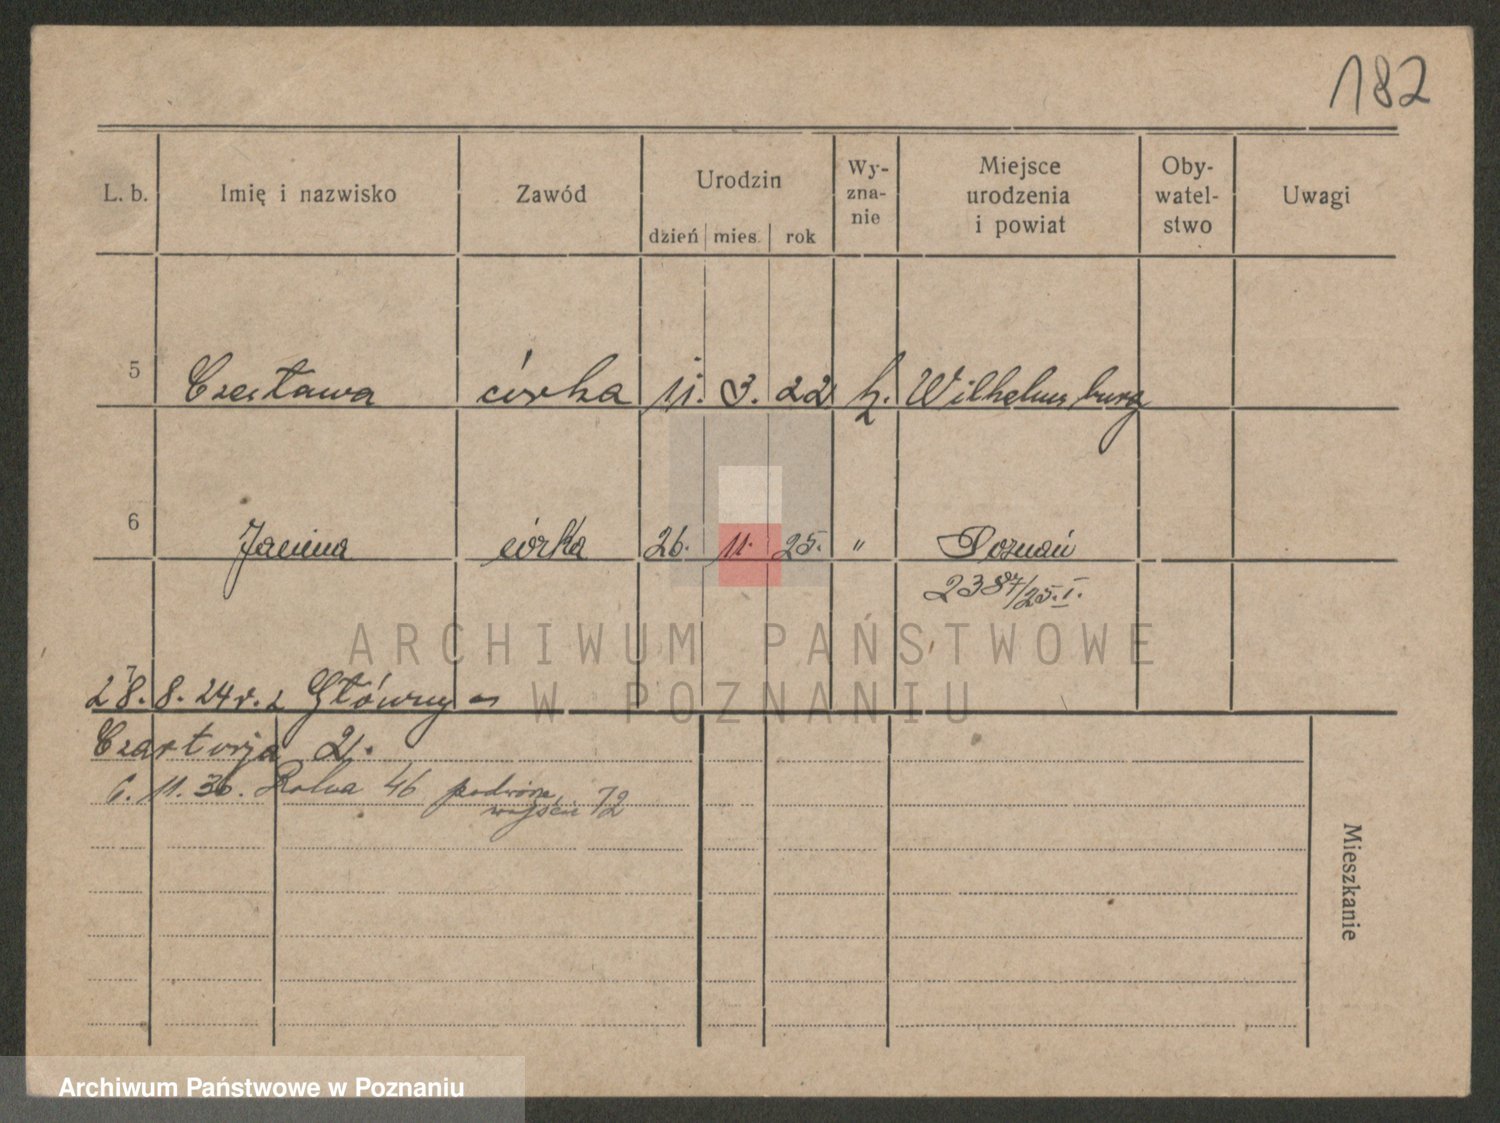 182
L. b. Imię i nazwisko Zawód Urodzin dzień mies. rok Wy-zna-nie Miejsce urodzenia i powiat Oby-watel-stwo Uwagi
5 Czesława córka 11. 3. 22 k. Wilhelmsburg
6 Janina córka 26. 11. 25. " Poznań
2387/25.I.
28. 8. 24 r. z Główny
Czartorja 2.
6. 11. 36. Rolna 46 podwórze
wejście 72
Mieszkanie
ARCHIWUM PAŃSTWOWE
W POZNANIU
Archiwum Państwowe w Poznaniu